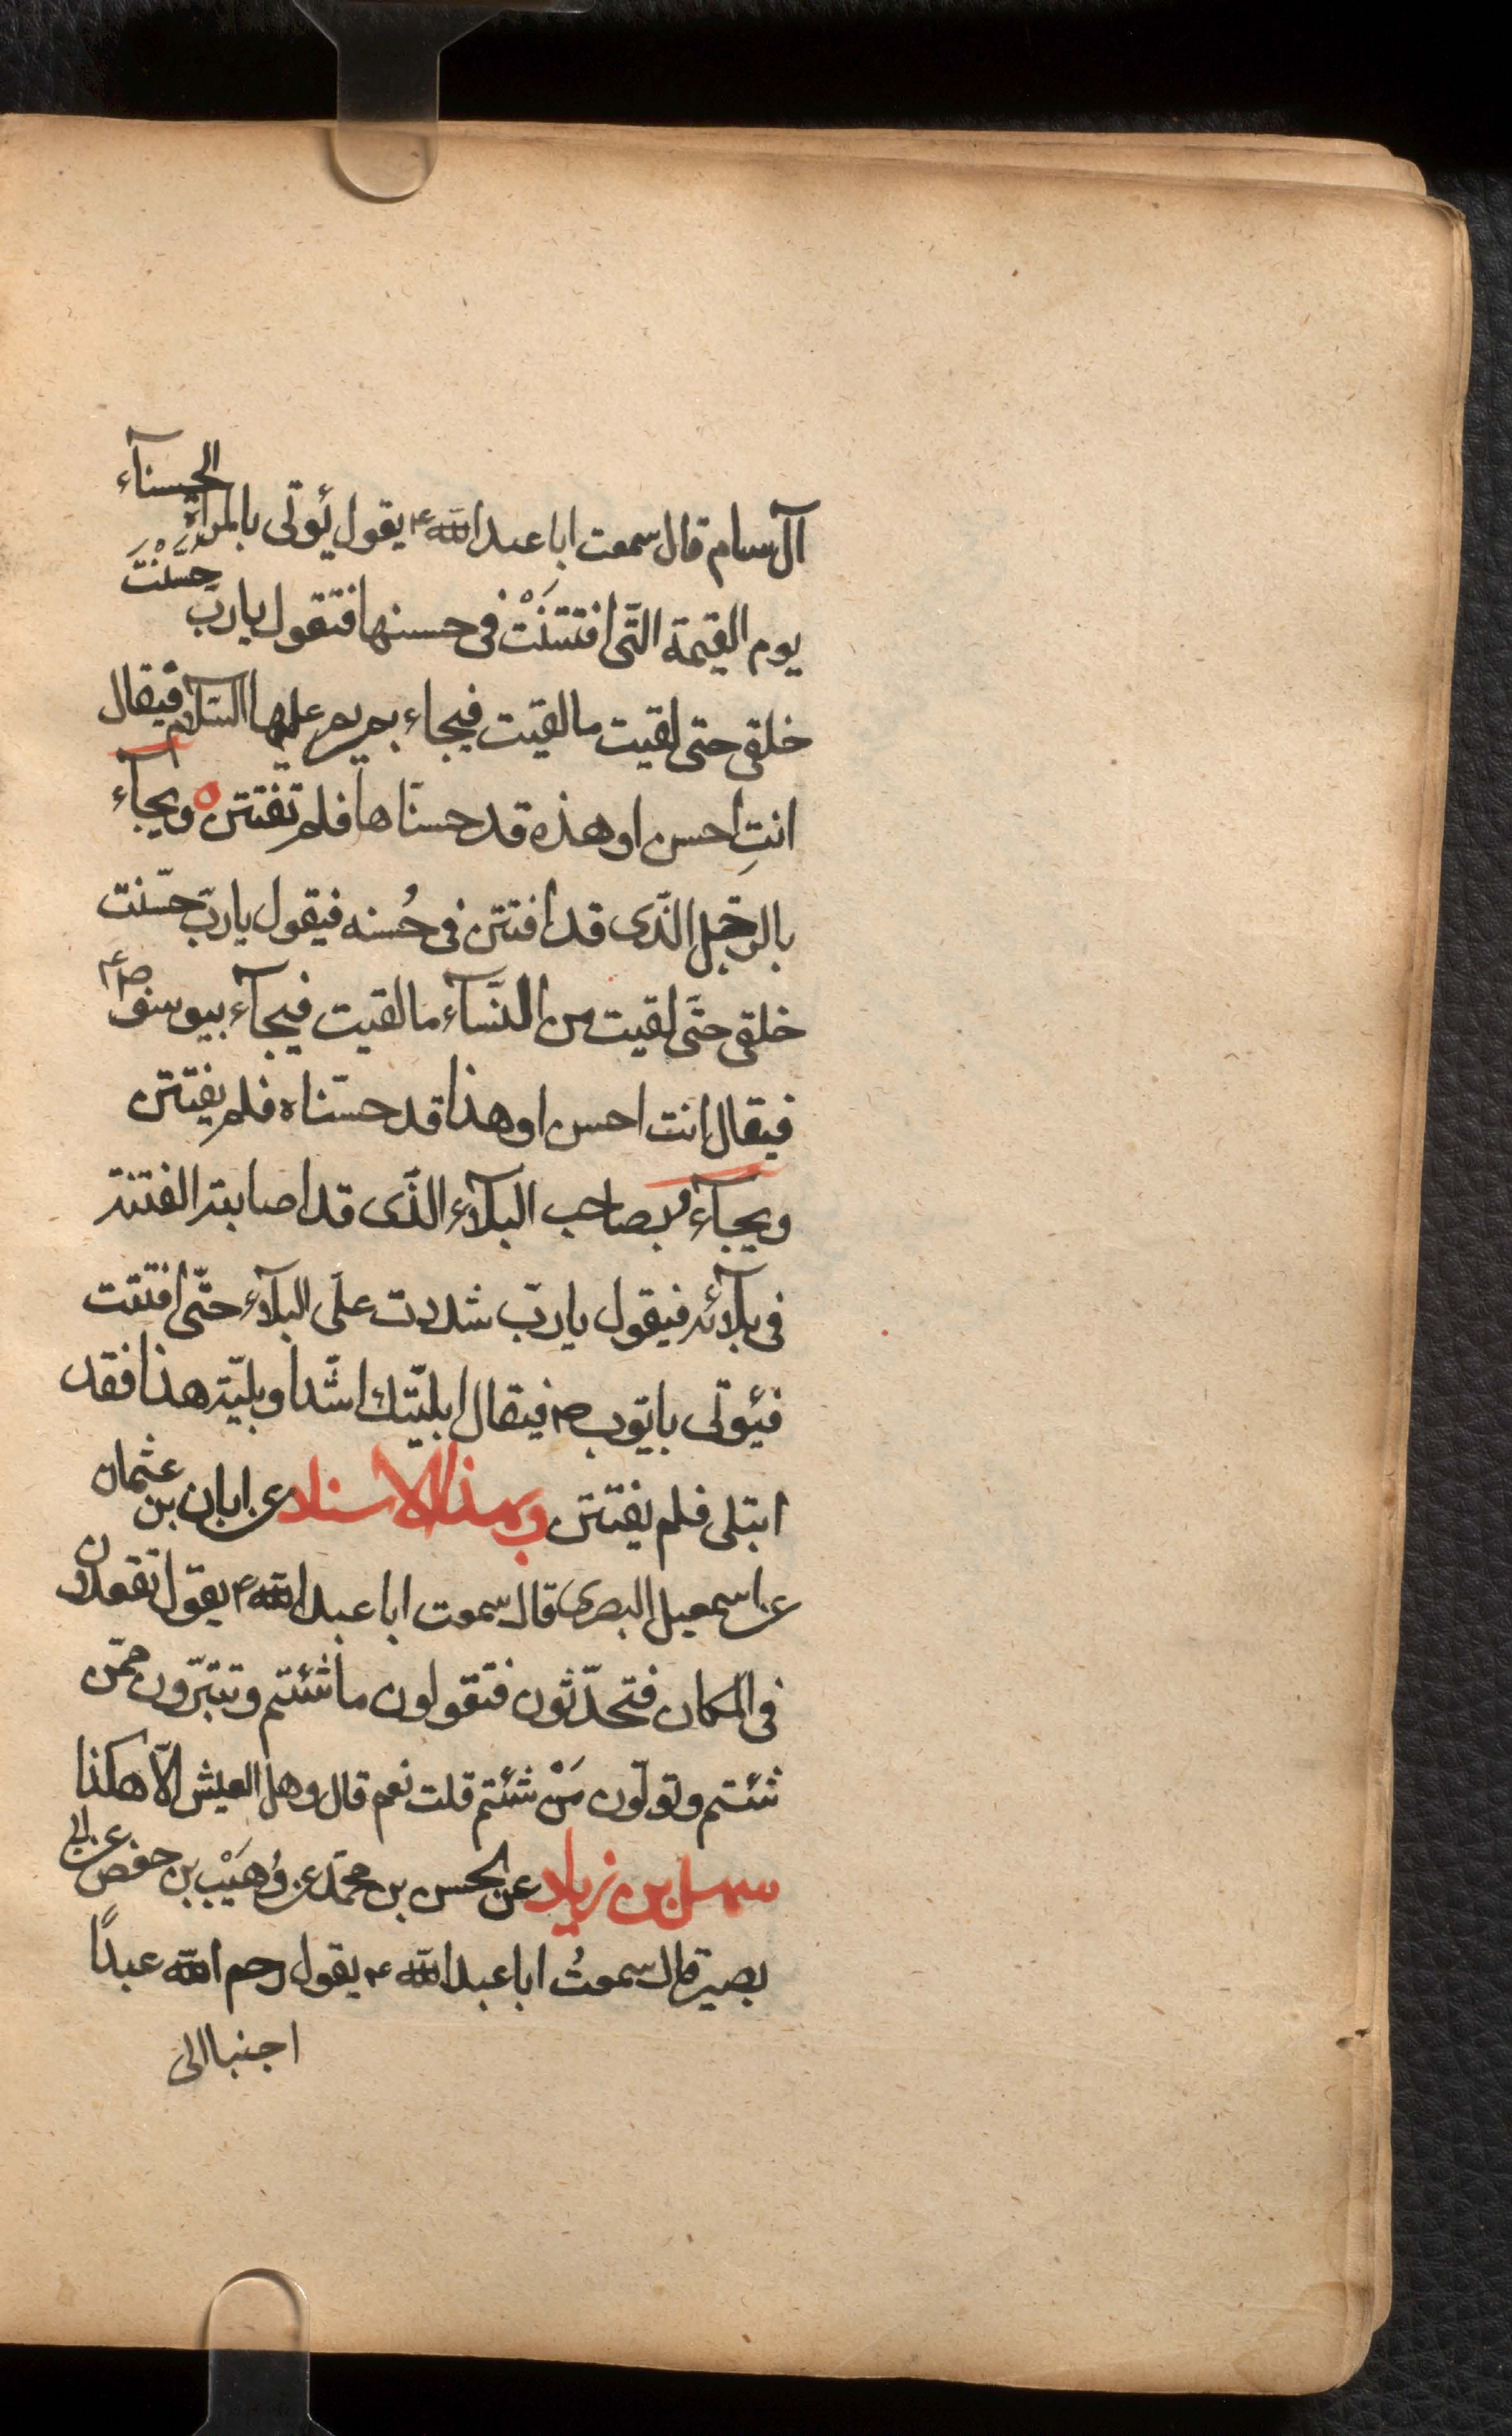 آل سام قال سمعت ابا عبد الله ع يقول يُؤتى بالمرأة الحسنآء
يوم القيمة الّتى افتتنَتْ فى حسنها فتقول يا ربّ حسّنْتَ
خلقى حتى لقيت ما لقيت فيجاء بمريم عليها السّلام فيقال
انتِ احسن او هذه قد حسنّاها فلم تفتتن ويجآء
بالرّجل الّذى قد افتتن فى حُسنه فيقول يا ربّ حسّنت
خلقى حتّى لقيت من النّسآء ما لقيت فيجآء بيوسف ص ع
فيقال انت احسن او هذا قد حسّناه فلم يفتتن
ويجآء بصاحب البلآء الّذى قد اصابته الفتنة
فى بلآئه فيقول يا ربّ شددت علىّ البلآء حتّى افتتنت
فيؤتى بايّوب ص فيقال ابليّتك اشّد او بليّة هذا فقد
ابتلى فلم يفتتن وبهذا الاسناد عن ابان بن عثمان
عن اسمعيل البصرى قال سمعت ابا عبد الله ع يقول تقعدون
فى المكان فتحدّثون فتقولون ما شئتم وتتبرّون ممّن
شئتم وتولّون مَنْ شئتم قلت نعم قال وهل العيش الّا هكذا
سهل بن زياد عن الحسن بن محمّد عن وُهَيْب بن حفص عن ابى
بصير قال سمعتُ ابا عبد الله ع يقول رحم الله عبدًا
اجنبا الى